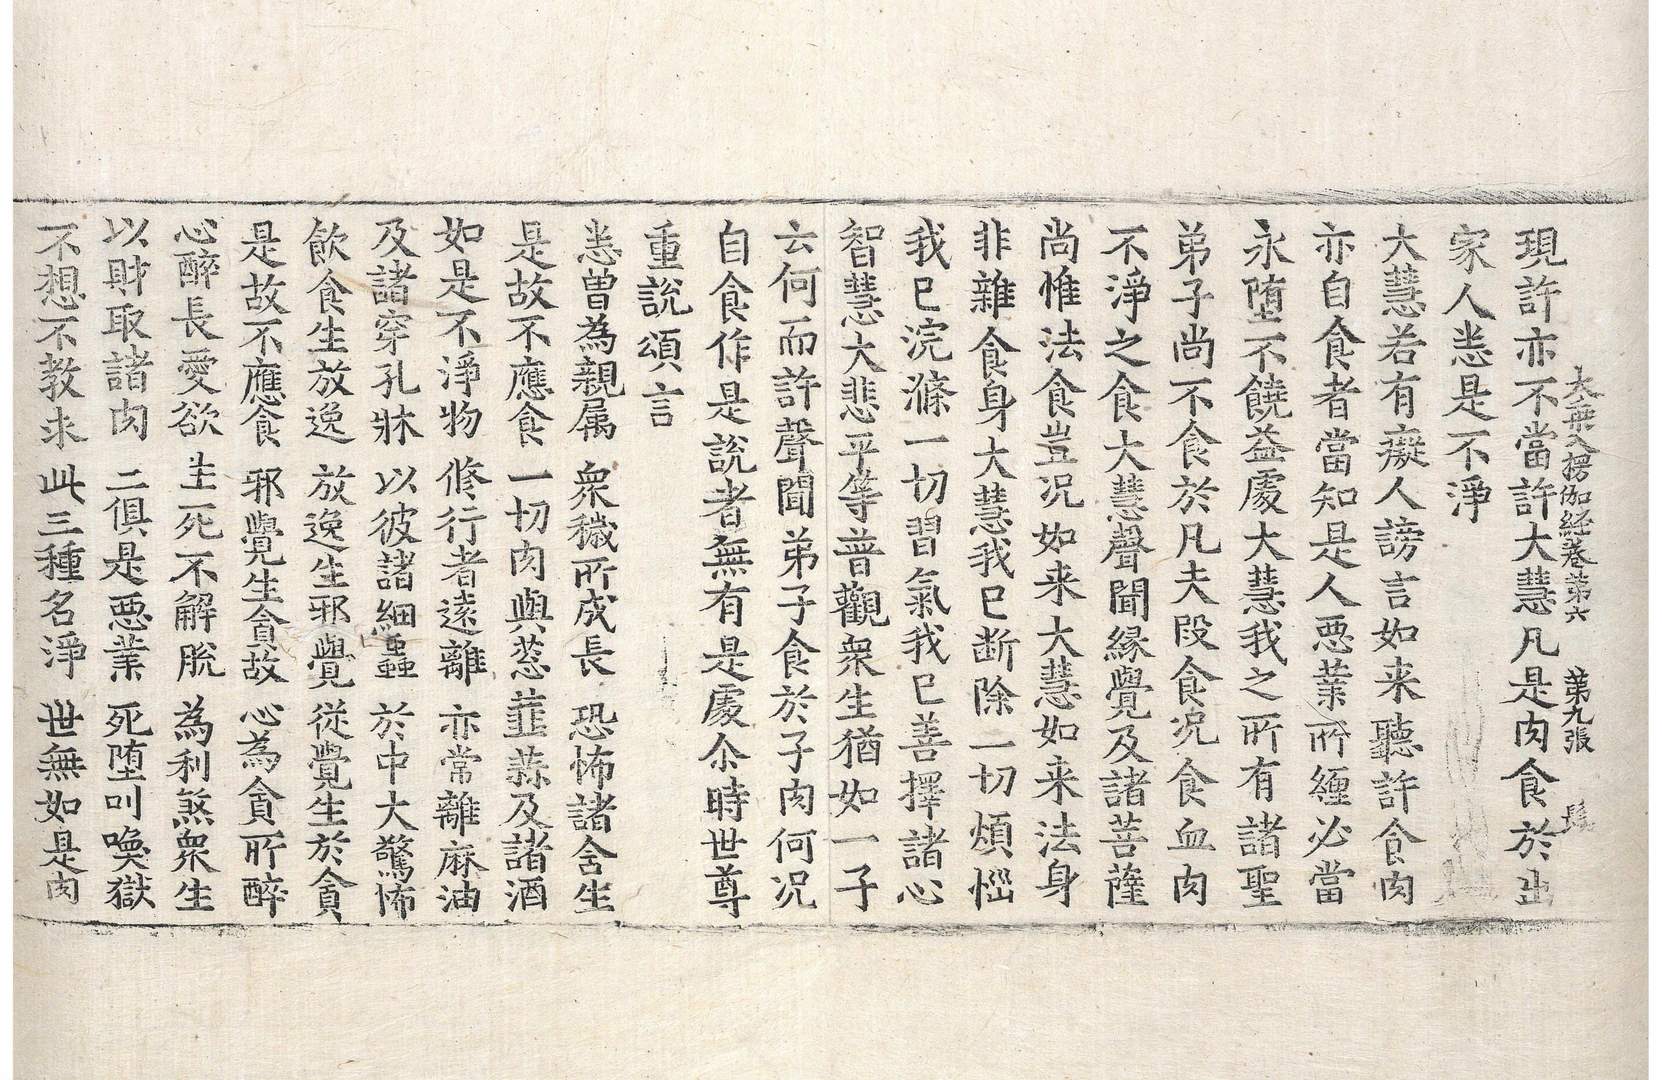 大乘入楞伽経巻第六　第九張　髮
現許亦不當許大慧凡是肉食於出
家人悉是不淨
大慧若有癡人謗言如来聽許食肉
亦自食者當知是人悪業所纏必當
永堕不饒益處大慧我之所有諸聖
弟子尚不食於凡夫段食况食血肉
不淨之食大慧聲聞縁覺及諸菩薩
尚惟法食豈况如来大慧如来法身
非雜食身大慧我已断除一切煩惱
我已浣滌一切習氣我已善擇諸心
智慧大悲平等普觀衆生猶如一子
云何而許聲聞弟子食於子肉何况
自食作是說者無有是處尒時世尊
重說頌言
悉曽為親属　衆穢所成長　恐怖諸含生
是故不應食　一切肉與葱　韮蒜及諸酒
如是不淨物　修行者遠離　亦常離麻油
及諸穿孔牀　以彼諸細蟲　於中大驚怖
飲食生放逸　放逸生邪覺　從覺生於貪
是故不應食　邪覺生貪故　心為貪所醉
心醉長愛欲　生死不解脫　為利煞衆生
以財取諸肉　二俱是悪業　死堕叫喚獄
不想不教求　此三種名淨　世無如是肉